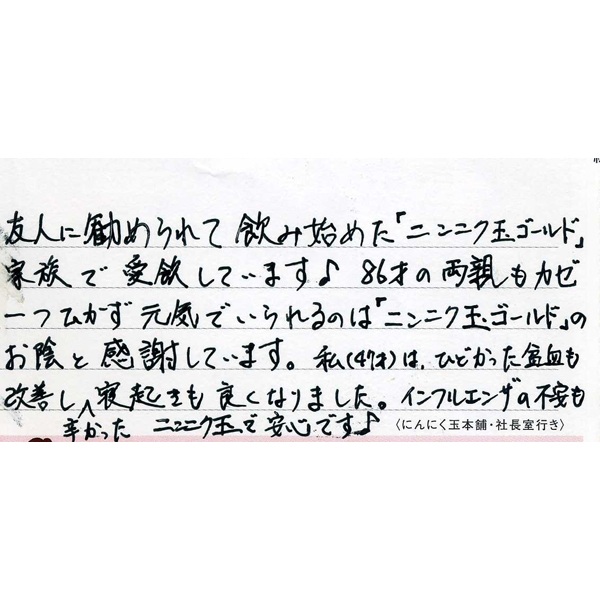 友人に勧められて飲み始めた「ニンニク玉ゴールド」
家族で愛飲しています♪ 86才の両親もカゼ
一つひかず元気でいられるのは「ニンニク玉ゴールド」の
お陰と感謝しています。私(47才)は、ひどかった貧血も
改善し、辛かった寝起きも良くなりました。インフルエンザの不安も
ニンニク玉で安心です♪
〈にんにく玉本舗・社長室行き〉